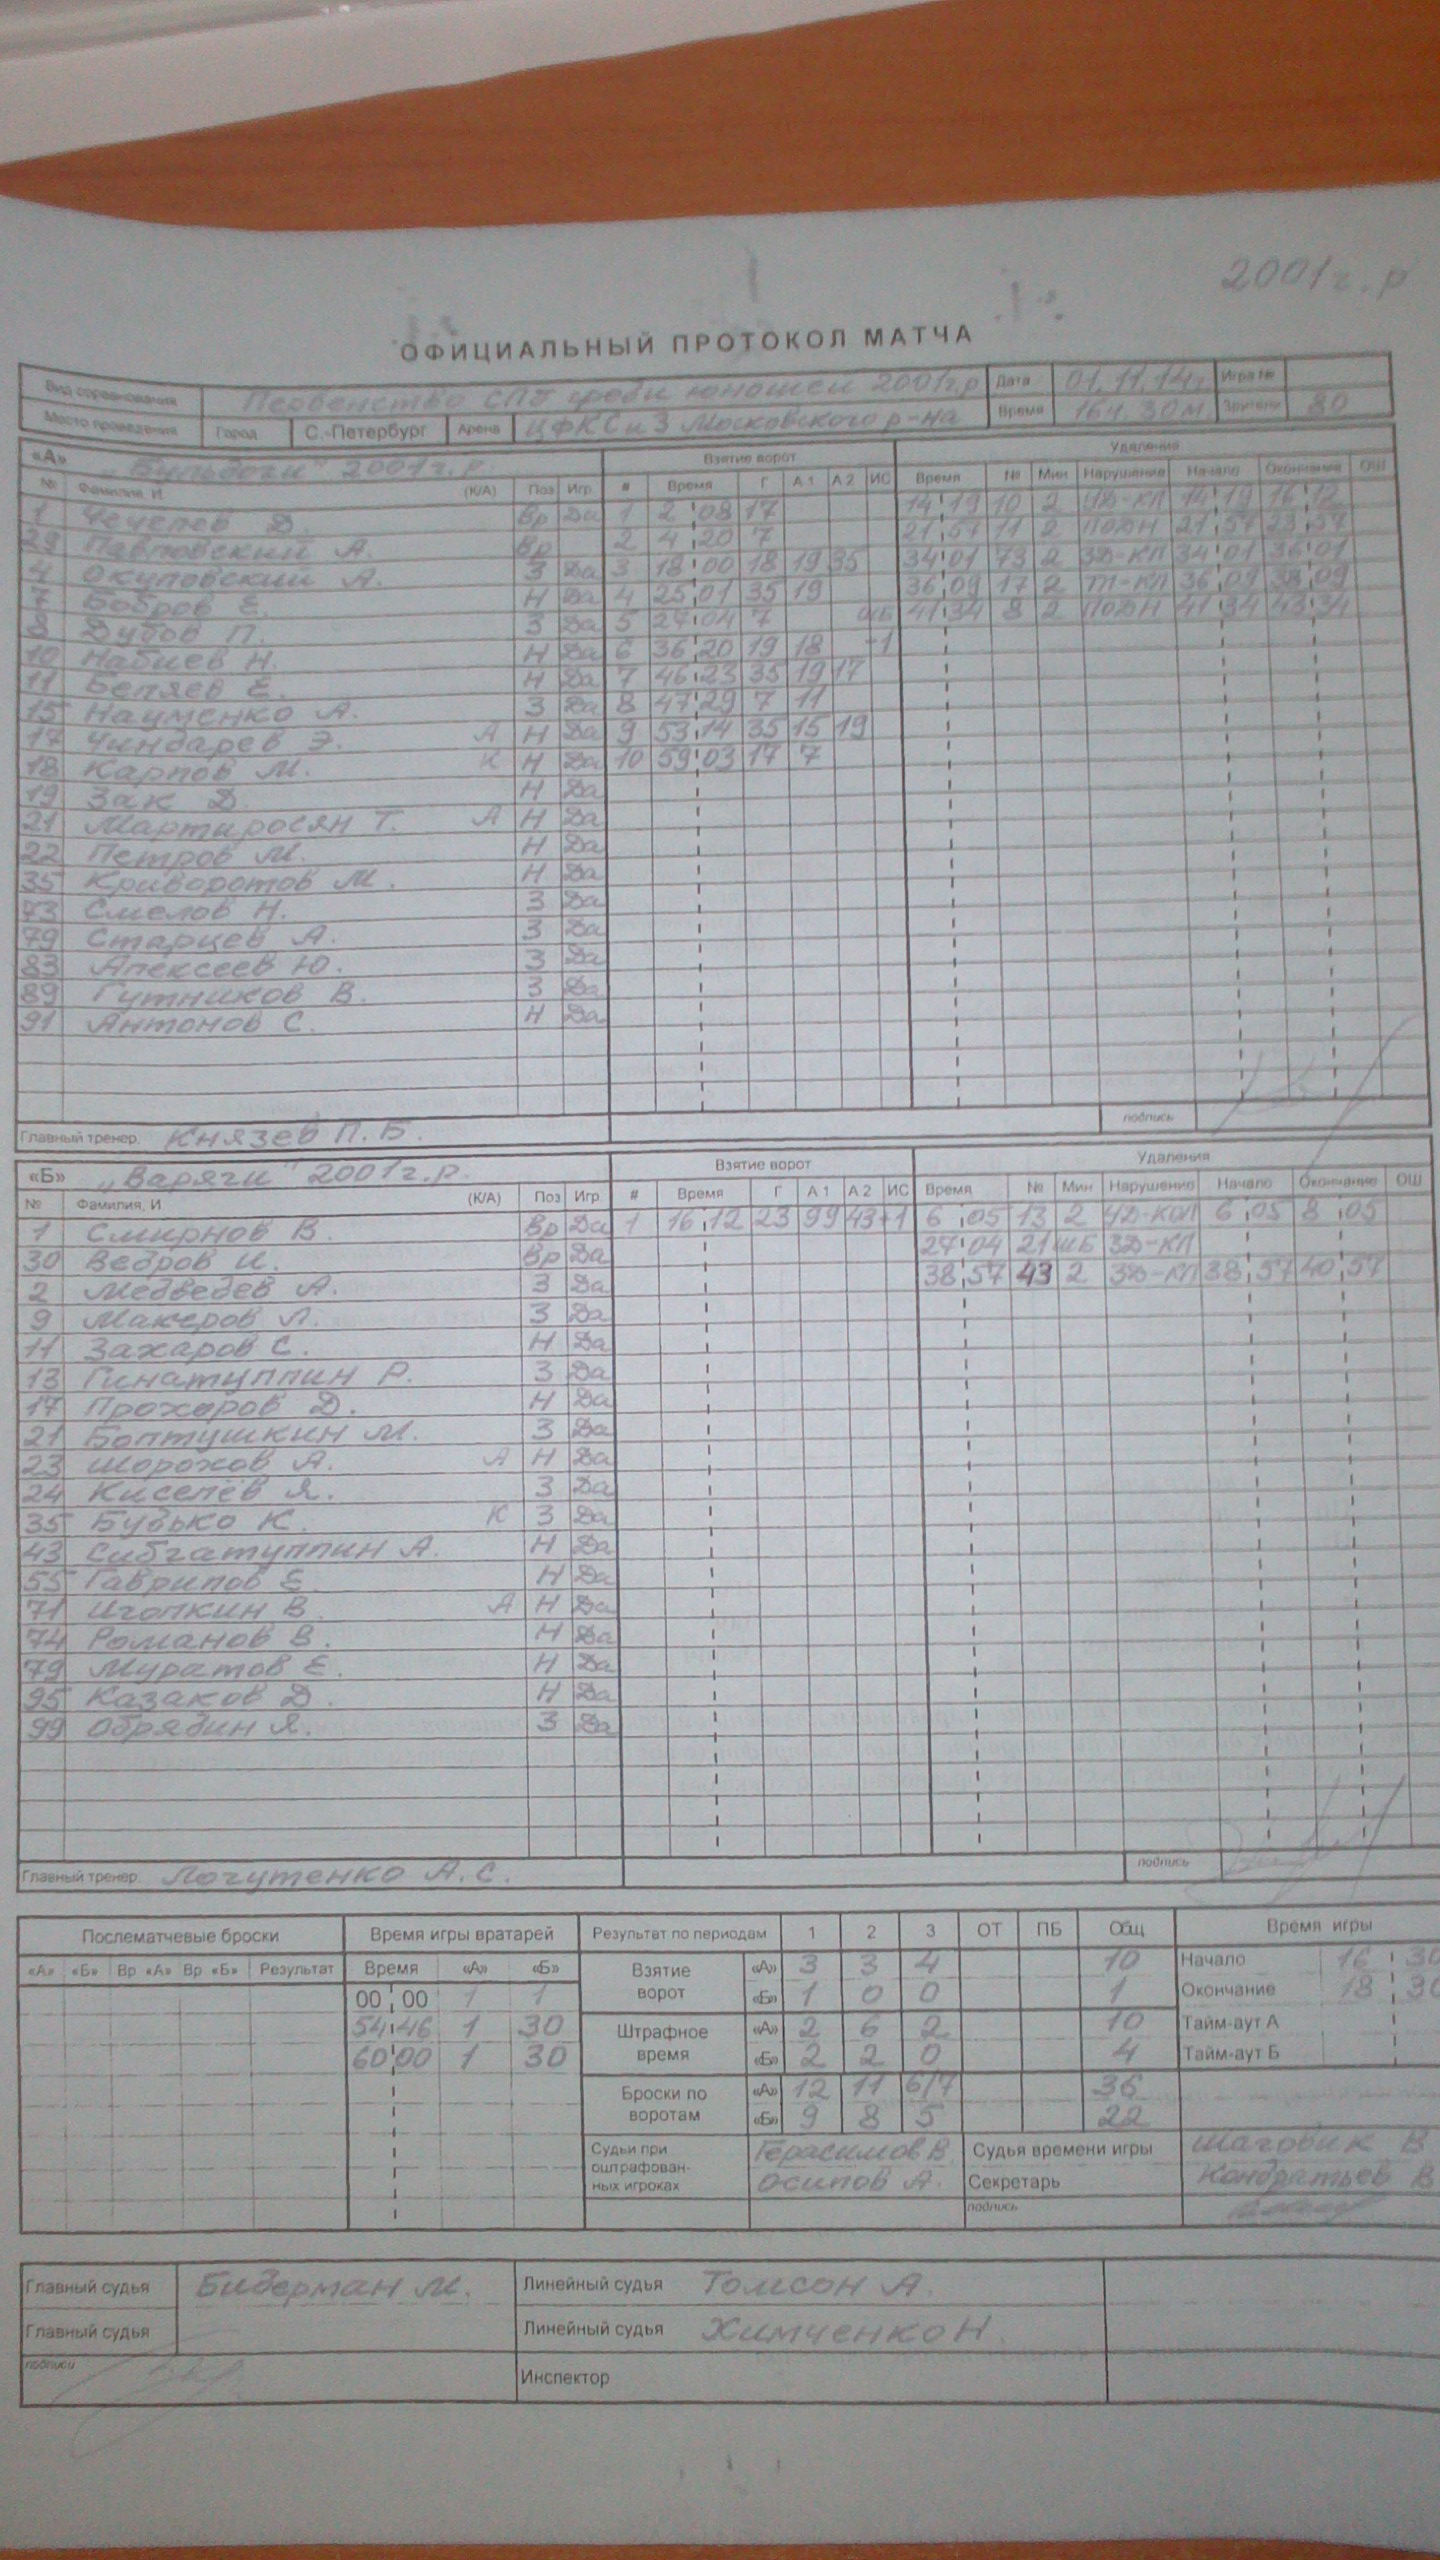 2001г.р
ОФИЦИАЛЬНЫЙ ПРОТОКОЛ МАТЧА
Вид соревнования Первенство СПб среди юношей 2001г.р Дата 01.11.14г Игра №
Место проведения Город С.-Петербург Арена ЦФКСиЗ Московского р-на Время 16ч.30м Зрители 80
«А» „Бульдоги" 2001г.р. Взятие ворот Удаления
№ Фамилия, И. (К/А) Поз Игр # Время Г А1 А2 ИС Время № Мин Нарушение Начало Окончание ОШ
1 Чечелев Д. Вр Да 1 2 08 17 14 19 10 2 УД-КЛ 14 19 16 12
29 Павловский А. Вр 2 4 20 7 21 57 11 2 ПОДН 21 57 23 57
4 Окуловский А. З Да 3 18 00 18 19 35 34 01 73 2 ЗД-КЛ 34 01 36 01
7 Бобров Е. Н Да 4 25 01 35 19 36 09 17 2 Т-КЛ 36 09 38 09
8 Дубов П. З Да 5 27 04 7 ШБ 41 34 8 2 ПОДН 41 34 43 34
10 Набиев Н. Н Да 6 36 20 19 18 -1
11 Беляев Е. Н Да 7 46 23 35 19 17
15 Науменко А. З Да 8 47 29 7 11
17 Чиндарев Э. А Н Да 9 53 14 35 15 19
18 Карпов М. К Н Да 10 59 03 17 7
19 Зак Д. Н Да
21 Мартиросян Т. А Н Да
22 Петров М. Н Да
35 Криворотов М. Н Да
73 Смелов Н. З Да
79 Старцев А. З Да
83 Алексеев Ю. З Да
89 Гутников В. З Да
91 Антонов С. Н Да
Главный тренер. Князев П.Б. подпись
«Б» „Варяги" 2001г.р. Взятие ворот Удаления
№ Фамилия, И. (К/А) Поз Игр # Время Г А1 А2 ИС Время № Мин Нарушение Начало Окончание ОШ
1 Смирнов В. Вр Да 1 16 12 23 99 43 +1 6 05 13 2 УД-КОЛ 6 05 8 05
30 Ведров И. Вр Да 27 04 21 ШБ ЗД-КЛ
2 Медведев А. З Да 38 57 43 2 ЗД-КЛ 38 57 40 57
9 Макеров Л. З Да
11 Захаров С. Н Да
13 Гинатуллин Р. З Да
17 Прохоров Д. Н Да
21 Болтушкин М. З Да
23 Шорохов А. А Н Да
24 Киселёв Я. З Да
35 Будько К. К З Да
43 Сибгатуллин А. Н Да
55 Гаврилов Е. Н Да
71 Иголкин В. А Н Да
74 Романов В. Н Да
79 Муратов Е. Н Да
95 Казаков Д. Н Да
99 Обрядин Я. З Да
Главный тренер. Логутенко А.С. подпись
Послематчевые броски Время игры вратарей Результат по периодам 1 2 3 ОТ ПБ Общ Время игры
«А» «Б» Вр «А» Вр «Б» Результат Время «А» «Б» Взятие ворот «А» 3 3 4 10 Начало 16 30
00 00 1 1 «Б» 1 0 0 1 Окончание 18 30
54 46 1 30 Штрафное время «А» 2 6 2 10 Тайм-аут А
60 00 1 30 «Б» 2 2 0 4 Тайм-аут Б
Броски по воротам «А» 12 11 6/7 36
«Б» 9 8 5 22
Судьи при оштрафован-ных игроках Герасимов В. Судья времени игры Шаговик В
Осипов А. Секретарь Кондратьев В
подпись
Главный судья Бидерман М. Линейный судья Томсон А.
Главный судья Линейный судья Химченко Н.
подписи Инспектор